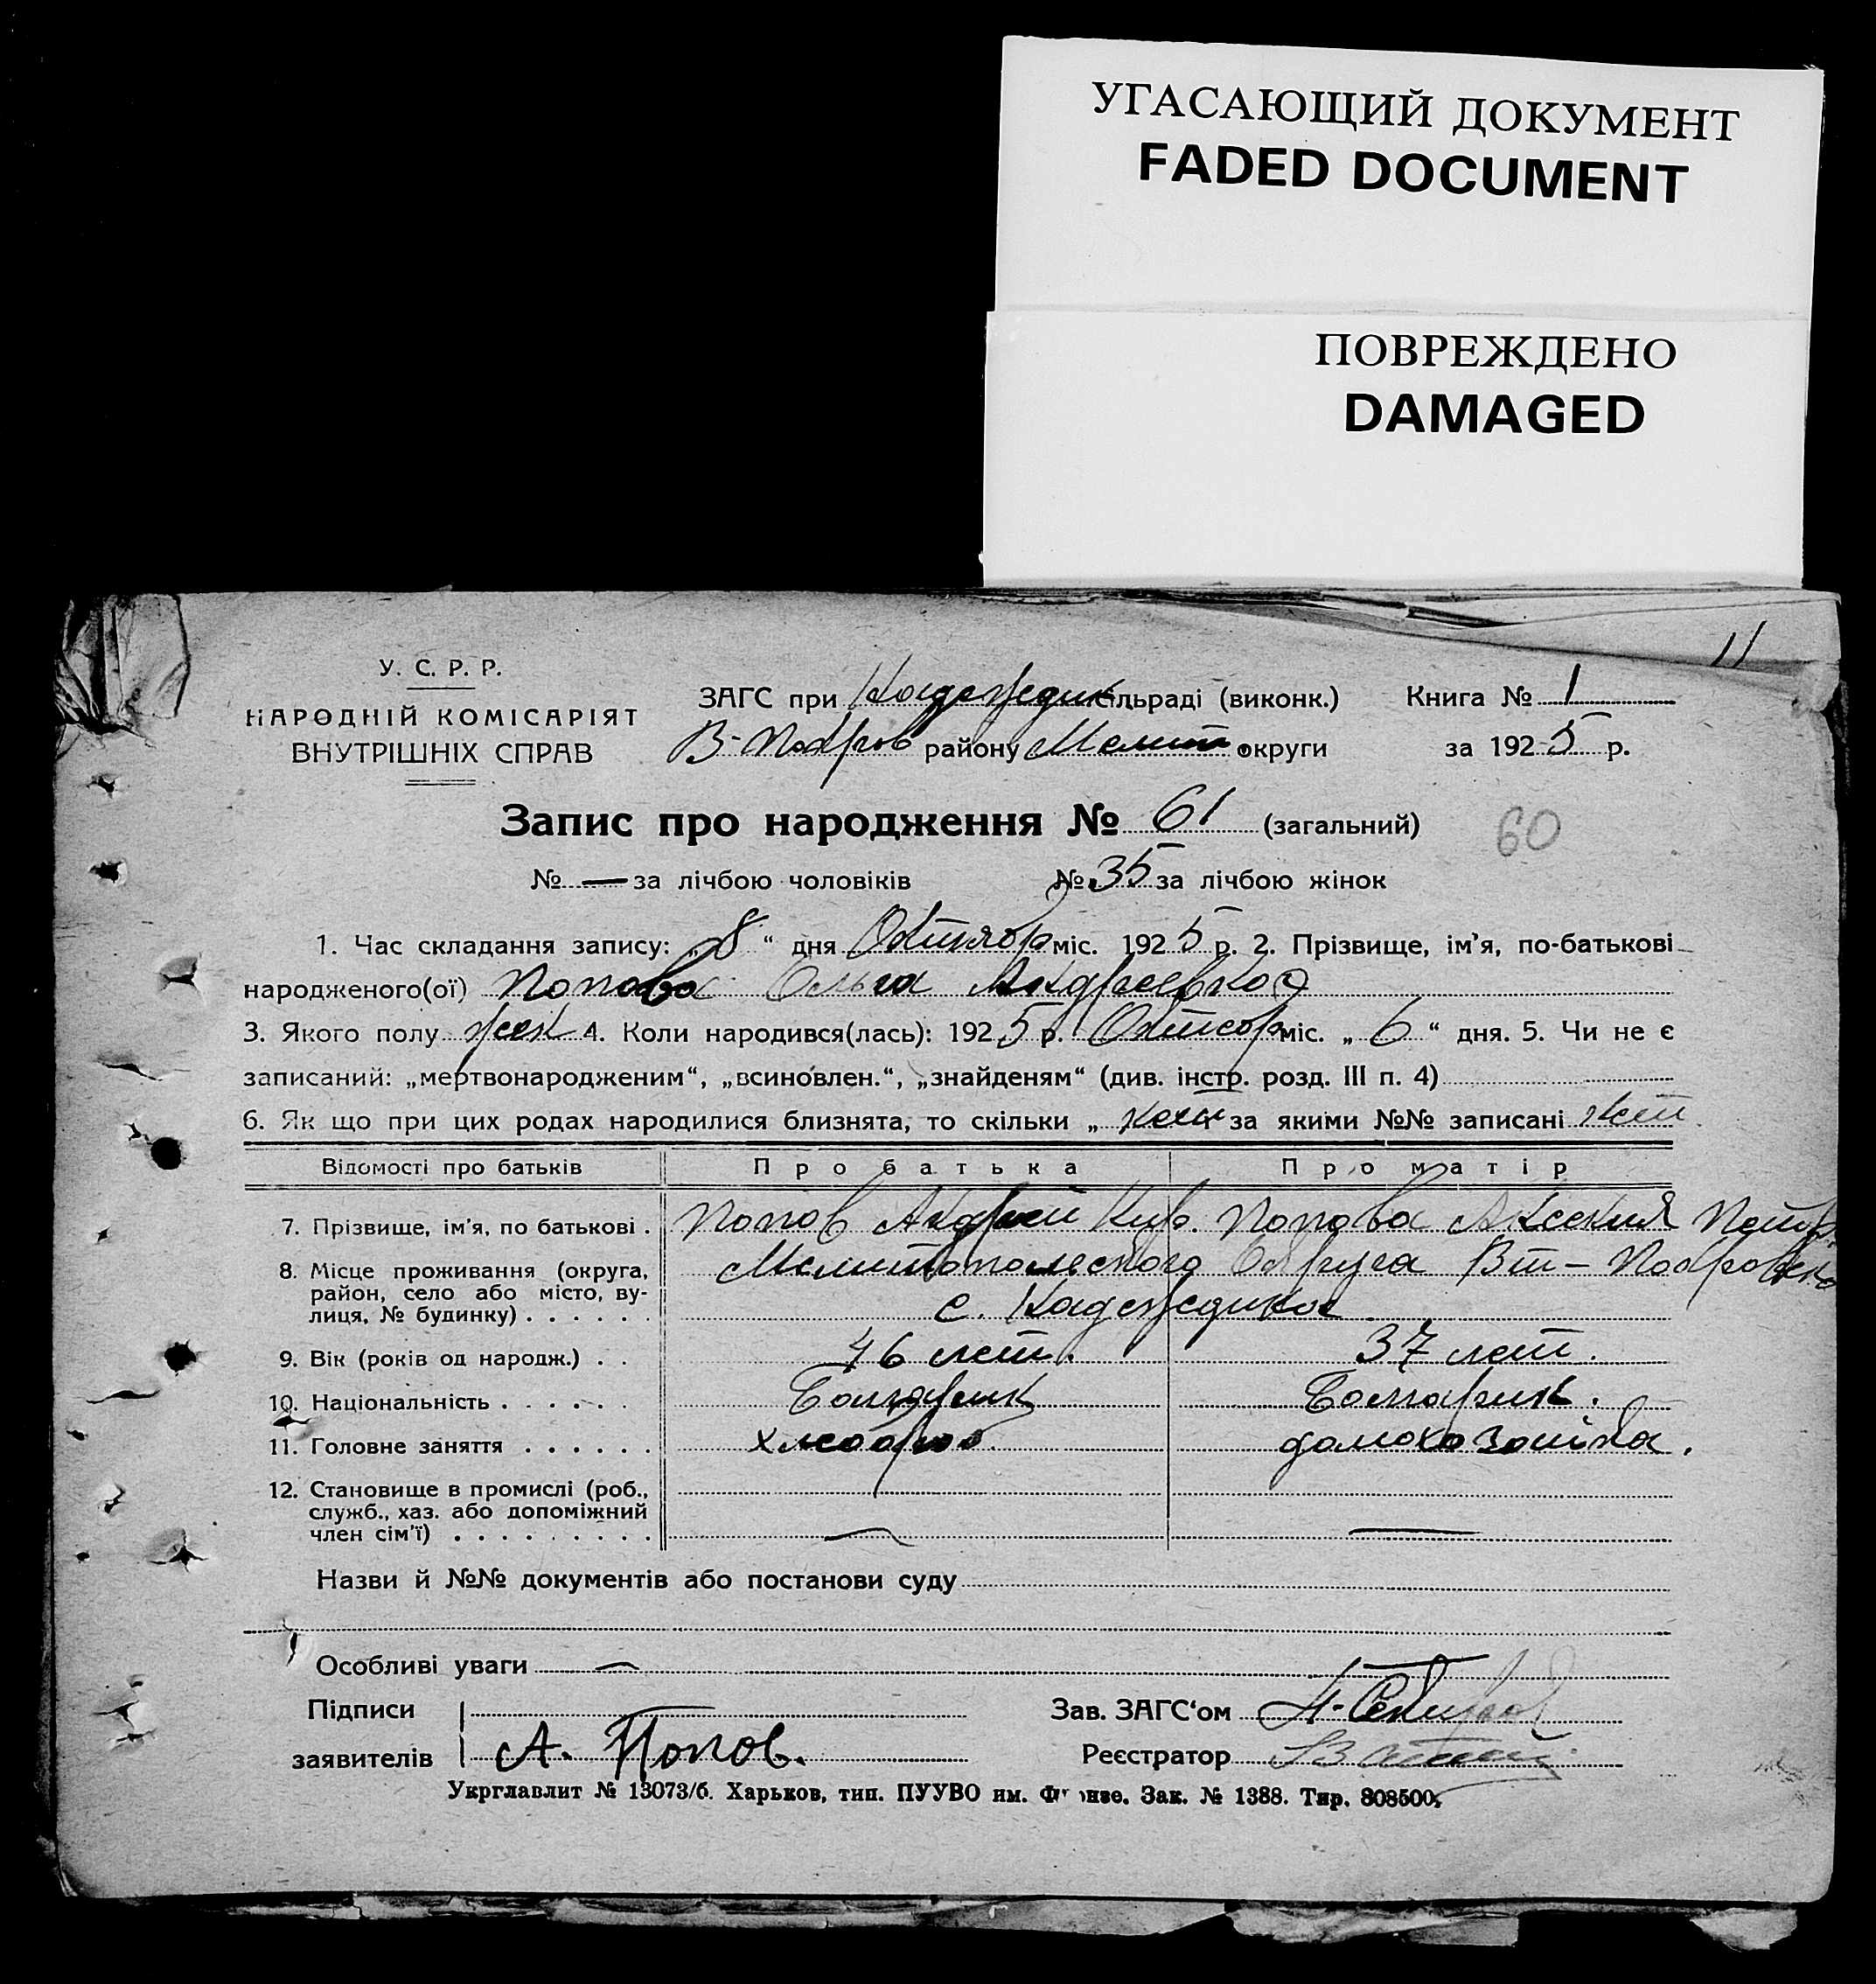 УГАСАЮЩИЙ ДОКУМЕНТ
FADED DOCUMENT
ПОВРЕЖДЕНО
DAMAGED
11
У. С. Р. Р.
НАРОДНІЙ КОМІСАРІЯТ
ВНУТРІШНІХ СПРАВ
ЗАГС при Надеждин сільраді (виконк.) Книга № 1
В-Покров району Мелит округи за 1925 р.
Запис про народження № 61 (загальний) 60
№ — за лічбою чоловіків № 35 за лічбою жінок
1. Час складання запису: „8“ дня Октябр міс. 1925 р. 2. Прізвище, ім’я, по-батькові
народженого(ої) Попова Ольга Андреевна
3. Якого полу жен 4. Коли народився(лась): 1925 р. Октябр міс. „6“ дня. 5. Чи не є
записаний: „мертвонародженим“, „всиновлен.“, „знайденям“ (див. інстр. розд. III п. 4)
6. Як що при цих родах народилися близнята, то скільки „ за якими №№ записані
Відомості про батьків Про батька Про матір
7. Прізвище, ім’я, по батькові . Попов Андрей Кир. Попова Аксения Петр
8. Місце проживання (округа, Мелитопольского Округа Вт-Покровск
район, село або місто, ву-
лиця, № будинку) . . . . . . с. Надеждина
9. Вік (років од народж.) . . 46 лет. 37 лет.
10. Національність . . . . . . Болгарин Болгарин.
11. Головне заняття . . . . . . хлебороб. домохозяйка.
12. Становище в промислі (роб.,
служб., хаз. або допоміжний
член сім’ї) . . . . . . . . . — —
Назви й №№ документів або постанови суду
Особливі уваги —
Підписи Зав. ЗАГС‘ом
заявителів А. Попов. Реєстратор
Укрглавлит № 13073/б. Харьков, тип. ПУУВО им. Фрунзе. Зак. № 1388. Тир. 808500.